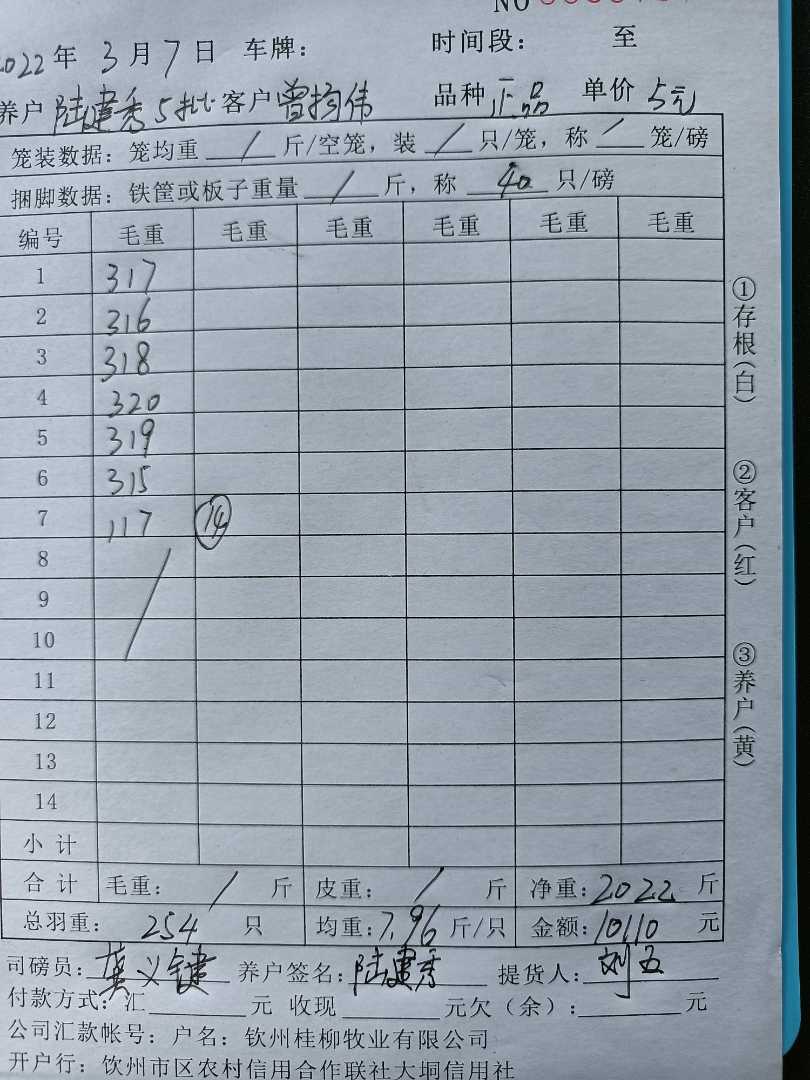 NO
2022年 3月7日 车牌： 时间段： 至
养户 陆建秀 5批 客户 曾均伟 品种 正品 单价 5元
笼装数据：笼均重 / 斤/空笼，装 / 只/笼，称 / 笼/磅
捆脚数据：铁筐或板子重量 / 斤，称 40 只/磅
编号 毛重 毛重 毛重 毛重 毛重 毛重
1 317
2 316
3 318
4 320
5 319
6 315
7 117 14
8
9
10
11
12
13
14
小计
合计 毛重： / 斤 皮重： / 斤 净重：2022 斤
总羽重： 254 只 均重：7.96 斤/只 金额：10110 元
司磅员：龚义键 养户签名：陆建秀 提货人：刘五
付款方式：汇 元 收现 元欠（余）： 元
公司汇款帐号：户名：钦州桂柳牧业有限公司
开户行：饮州市区农村信用合作联社大垌信用社
①存根（白）
②客户（红）
③养户（黄）